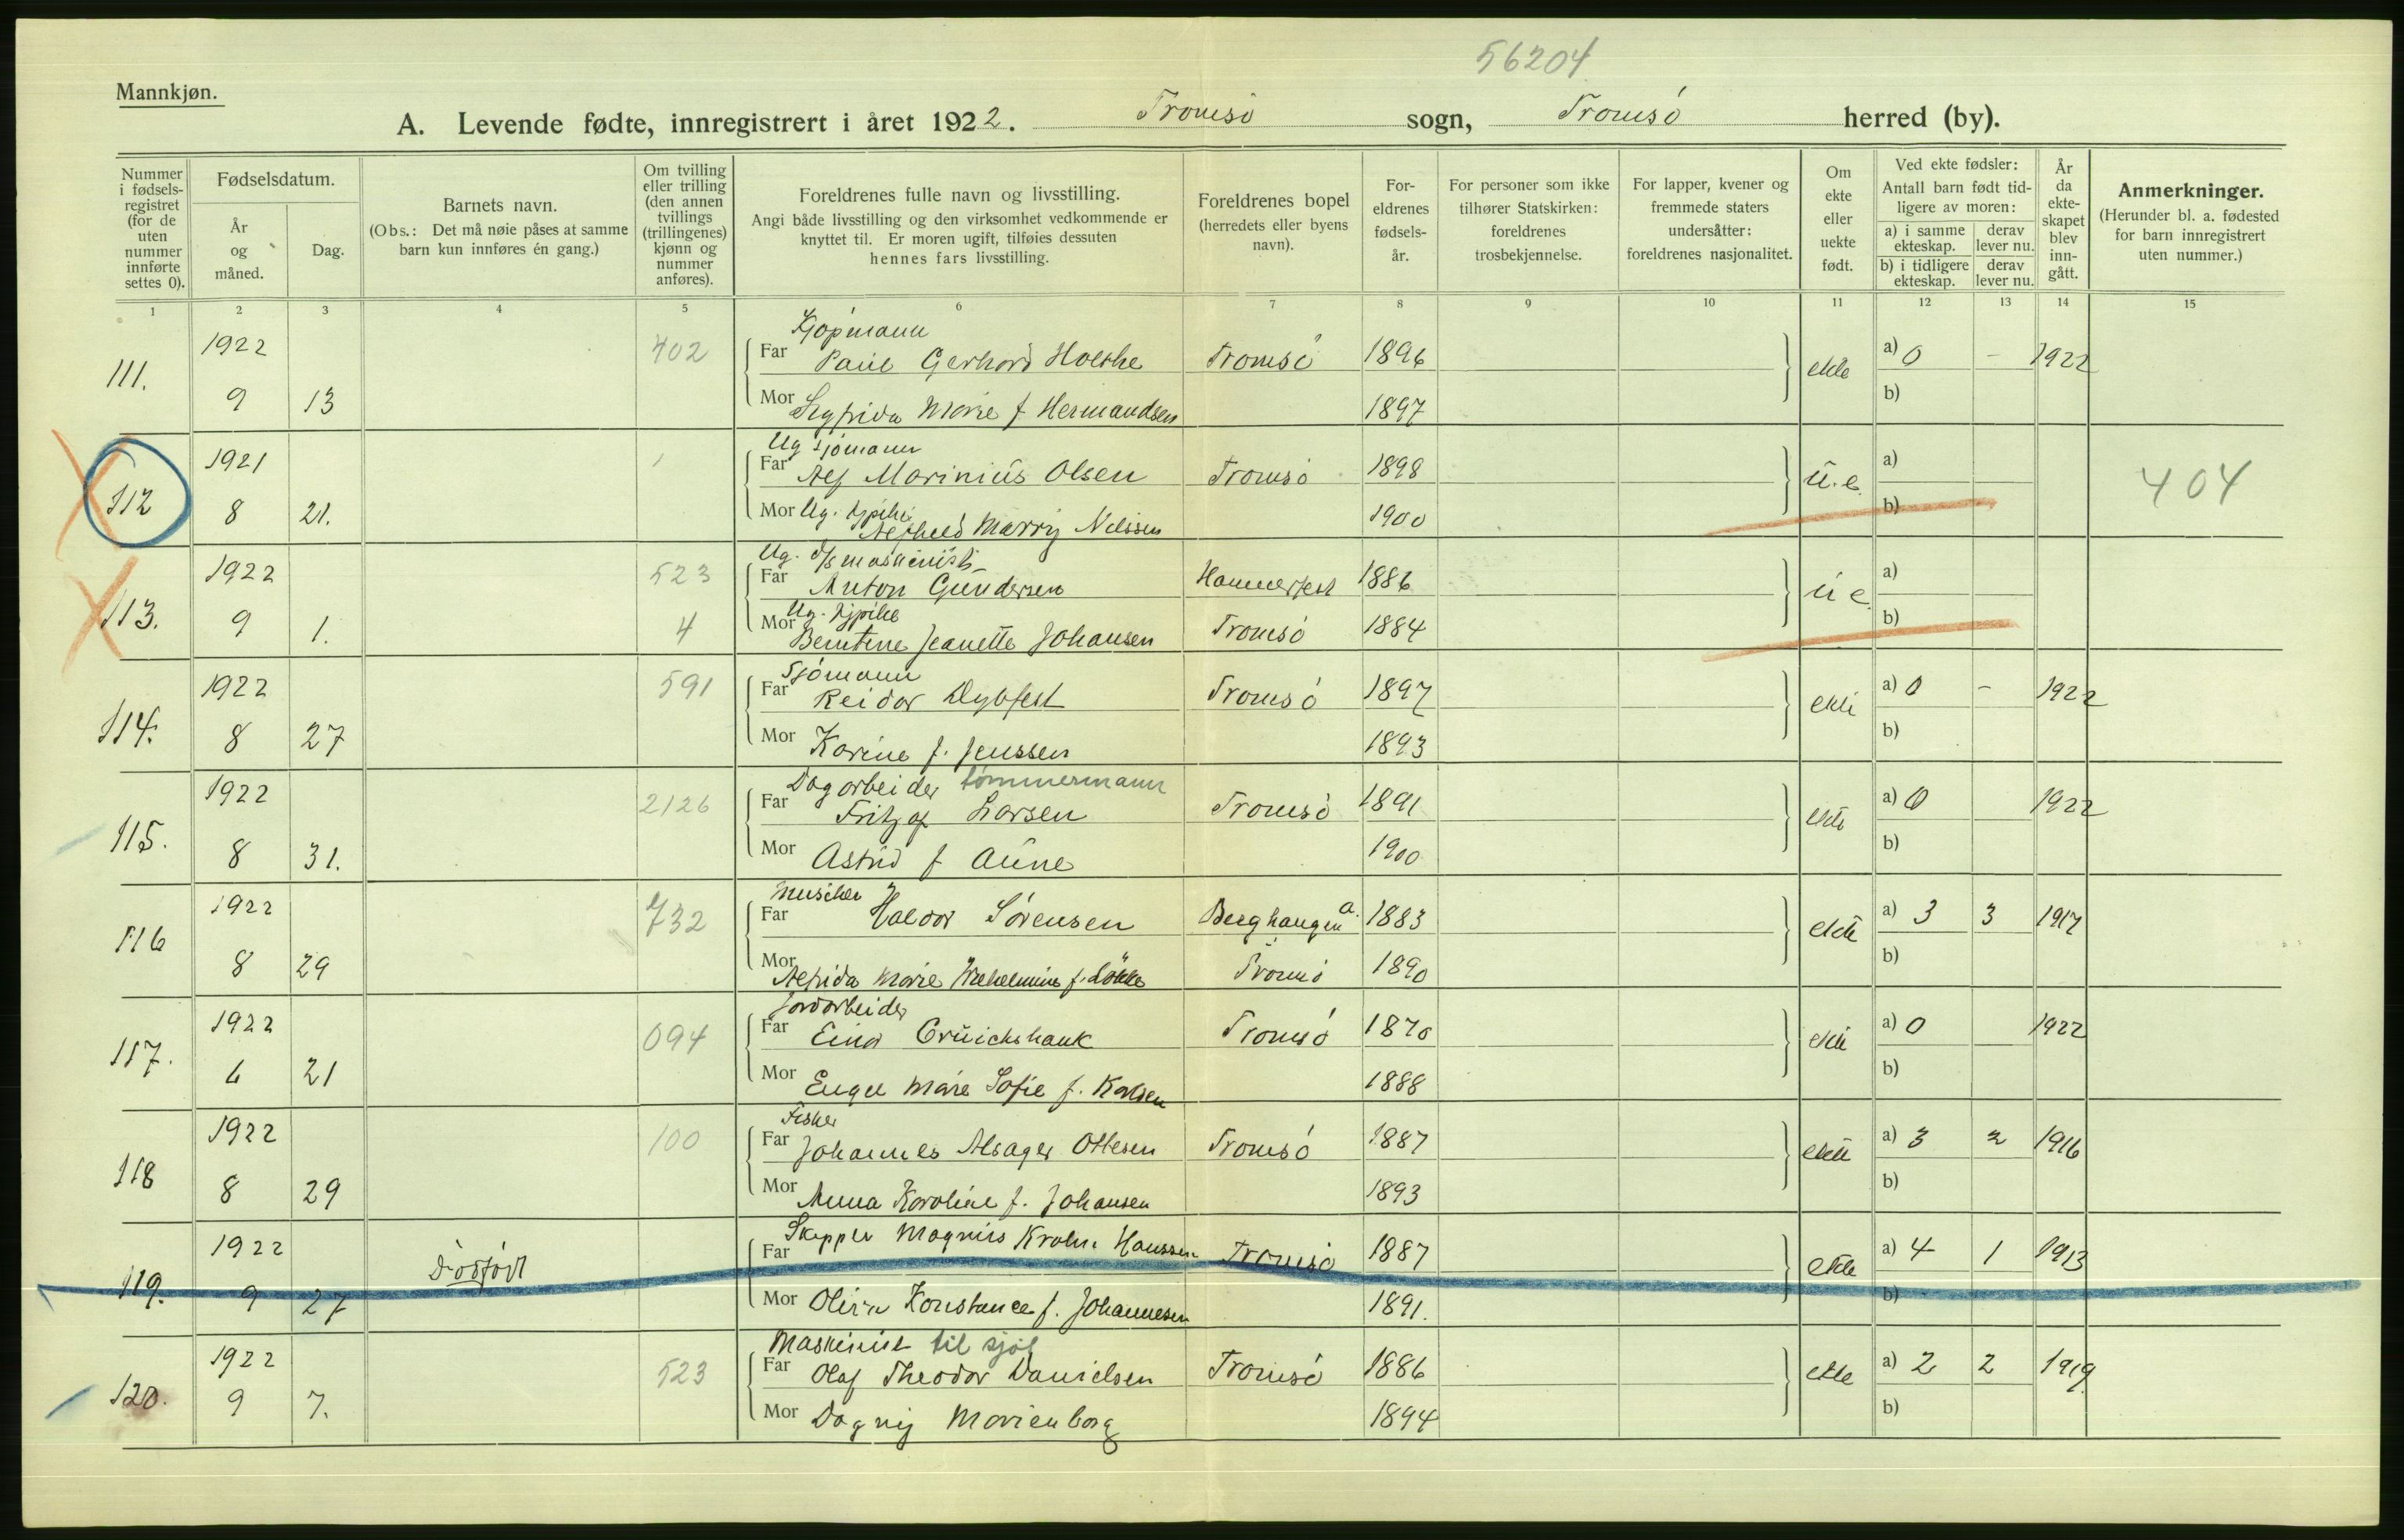 56204
Mannkjøn.
A. Levende fødte, innregistrert i året 1922. Tromsö sogn, Tromsö herred (by).
Nummer i fødsels-registret (for de uten nummer innførte settes 0).
Fødselsdatum.
År og måned.
Dag.
Barnets navn.
(Obs.: Det må nøie påses at samme barn kun innføres én gang.)
Om tvilling eller trilling (den annen tvillings (trillingenes) kjønn og nummer anføres).
Foreldrenes fulle navn og livsstilling.
Angi både livsstilling og den virksomhet vedkommende er knyttet til. Er moren ugift, tilføies dessuten hennes fars livsstilling.
Foreldrenes bopel (herredets eller byens navn).
For-eldrenes fødsels-år.
For personer som ikke tilhører Statskirken: foreldrenes trosbekjennelse.
For lapper, kvener og fremmede staters undersåtter: foreldrenes nasjonalitet.
Om ekte eller uekte født.
Ved ekte fødsler:
Antall barn født tid-ligere av moren:
a) i samme ekteskap. derav lever nu.
b) i tidligere ekteskap. derav lever nu.
År da ekte-skapet blev inn-gått.
Anmerkninger.
(Herunder bl. a. fødested for barn innregistrert uten nummer.)
1 2 3 4 5 6 7 8 9 10 11 12 13 14 15
Kjöpmann
111. 1922 402 Far Paul Gerhard Tromsö 1896 ekte a) 0 - 1922
9 13 Mor Marie f Hermandsen 1897 b)
Ug sjömann
112 1921 Far Alf Marinius Olsen Tromsö 1898 u.e. a) 404
8 21. Mor Ug. Marry Nilssen 1900 b)
Ug. maskinist
113. 1922 523 Far Anton Gundersen Hammerfest 1886 u e. a)
9 1. 4 Mor Ug. Jeanette Johansen Tromsö 1884 b)
Sjömann
114. 1922 591 Far Reidar Dybfest Tromsö 1897 ekte a) 0 - 1922
8 27 Mor Karine f. Jenssen 1893 b)
Dagarbeider tømmermann
115. 1922 2126 Far Fritjof Larsen Tromsö 1891 ekte a) 0 1922
8 31. Mor Astrid f Aune 1900 b)
116 1922 732 Far Haldor Sörensen Berghaugen a. 1883 ekte a) 3 3 1917
8 29 Mor Alfrida Marie f. Løkke Tromsö 1890 b)
Jordarbeider
117. 1922 094 Far Einar Cruickshank Tromsö 1870 ekte a) 0 1922
6 21 Mor Marie Sofie f. Karlsen 1888 b)
Fisker
118 1922 100 Far Johannes Alsager Ottesen Tromsö 1887 ekte a) 3 2 1916
8 29 Mor Anna Karoline f. Johansen 1893 b)
119. 1922 Dødfødt Far Skipper Magnus Krohn Hanssen Tromsö 1887 ekte a) 4 1 1913
9 27 Mor Konstance f. Johannesen 1891. b)
Maskinist til sjøs
120. 1922 523 Far Olaf Theodor Danielsen Tromsö 1886 ekte a) 2 2 1919
9 7. Mor Dagny Marienborg 1894 b)